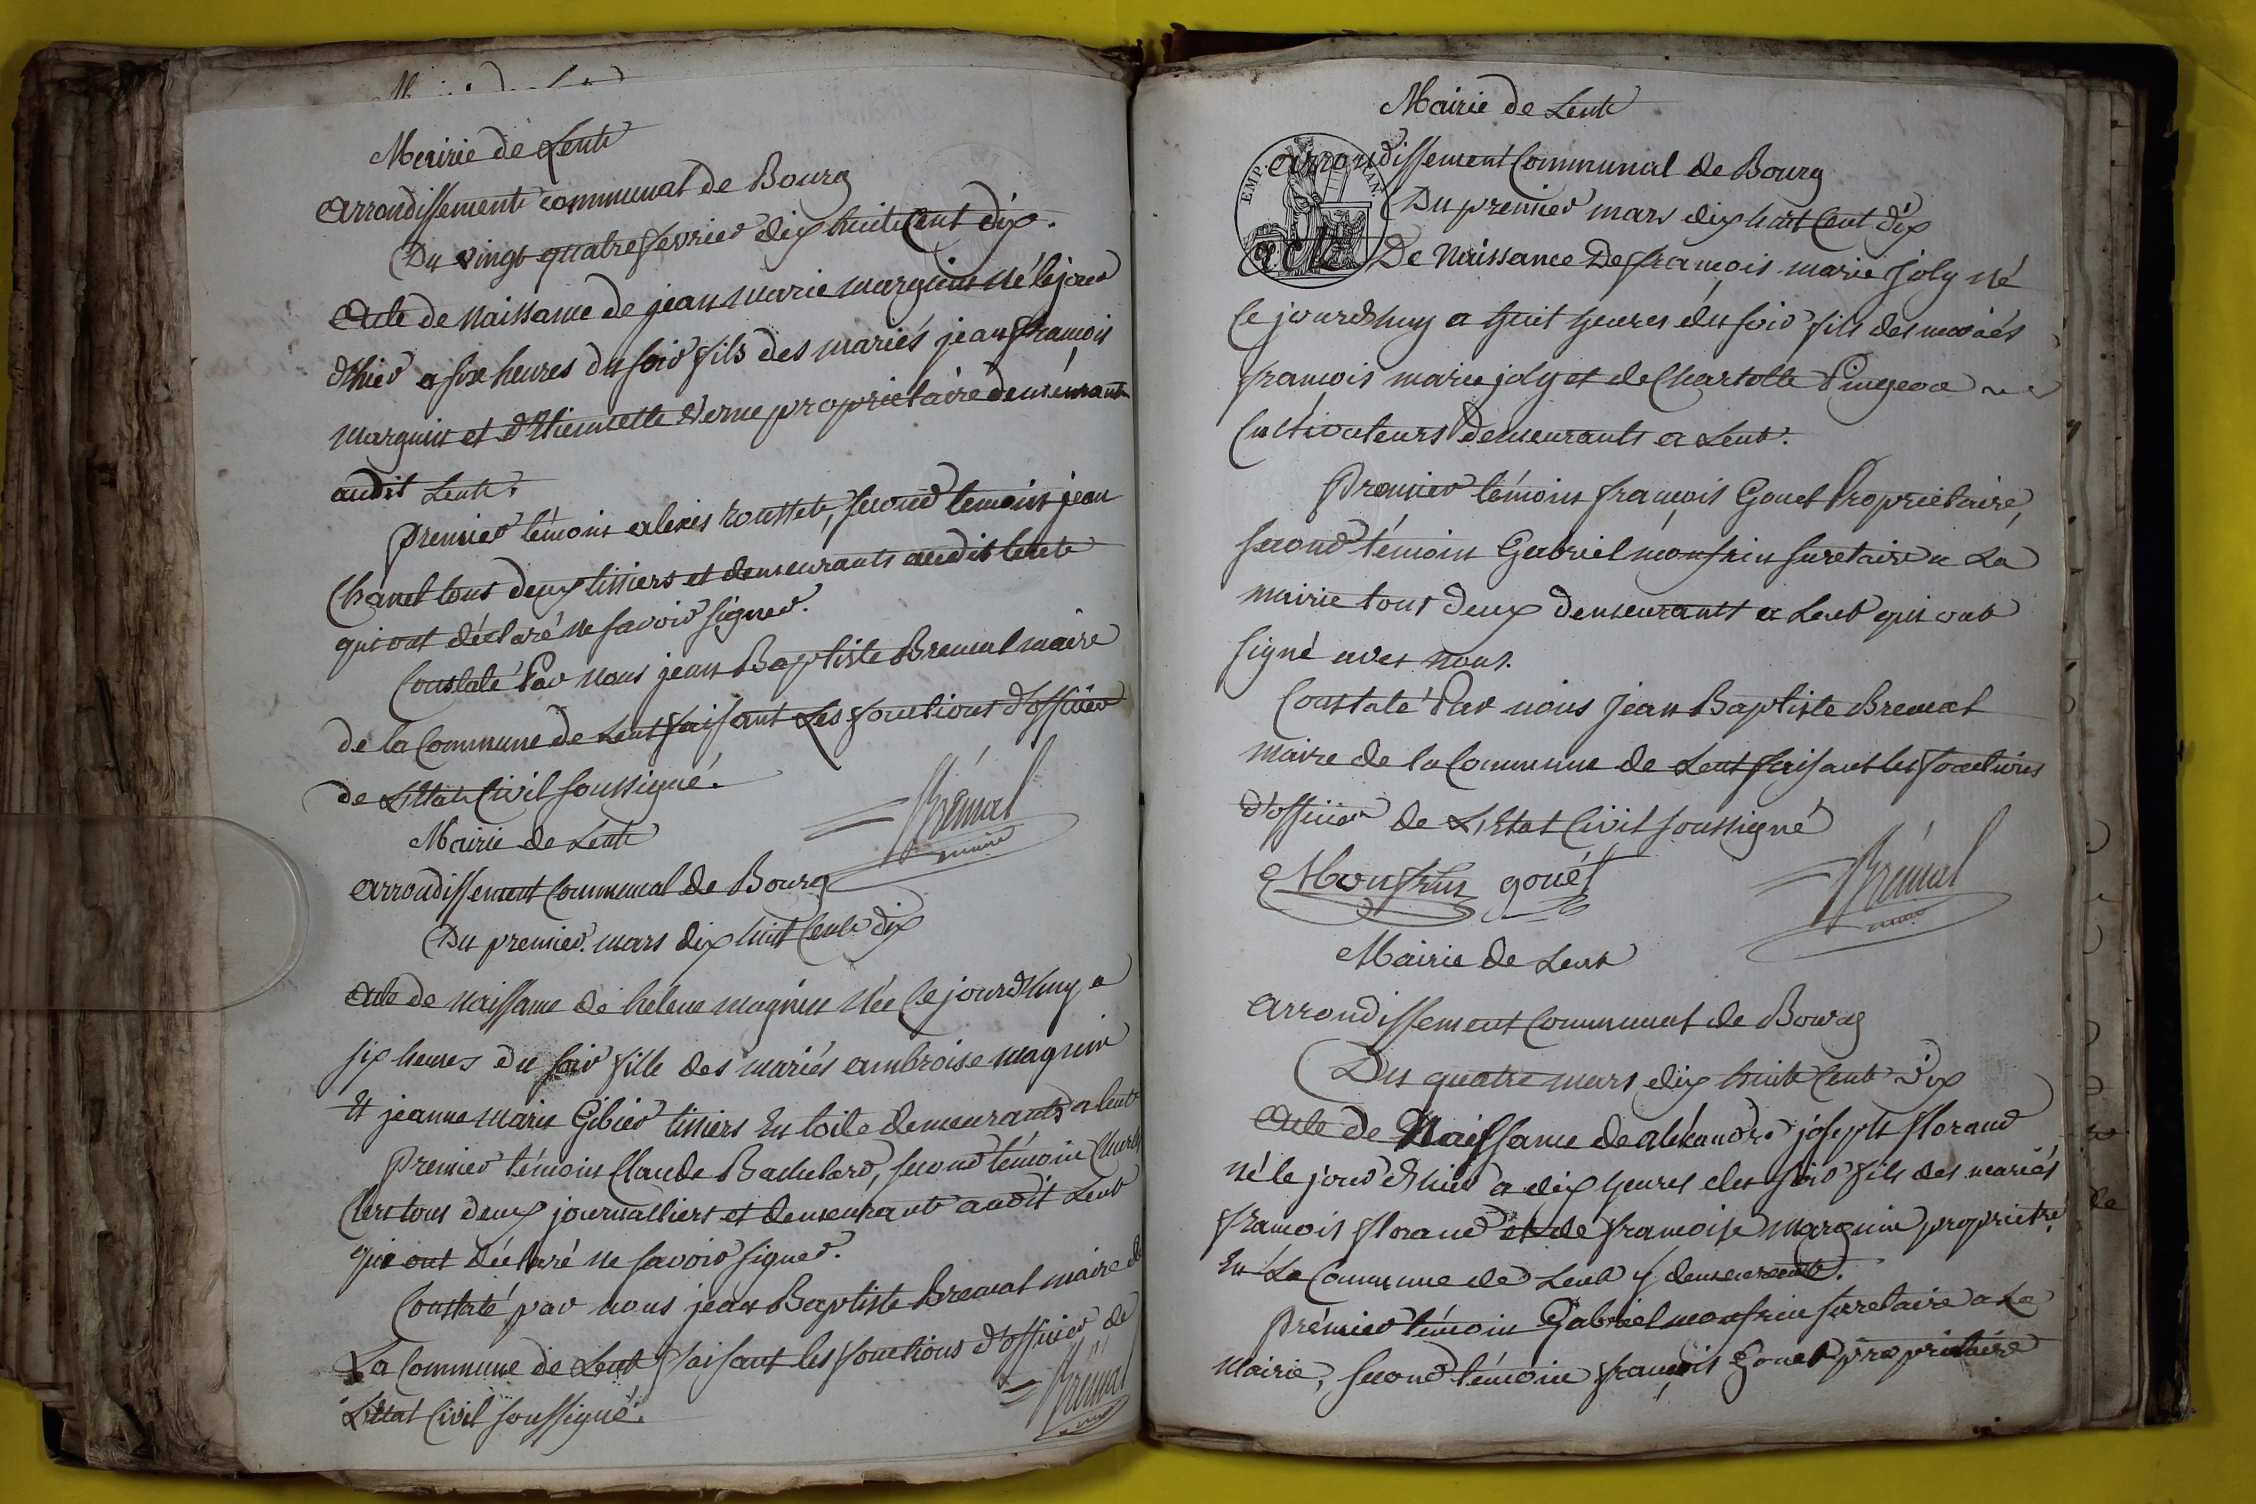 Mairie de Lent
Arrondissement communal de Bourg
Du vingt quatre fevrier dix huit Cent dix.
Acte de Naissance de jean marie marguin né le jour
d'hier a six heures du soir fils des mariés jean françois
marguin et d'Etiennette Verne propriétaire demeurant
audit Lent.
premier témoin alexis roussette, second temoin jean
Chanel tous deux tissiers et demeurants audit Lent
qui ont déclaré ne savoir signer.
Constaté Par nous jean Baptiste Bremal maire
de la Commune de Lent faisant Les fonctions d'officier
de L'Etat Civil soussigné.
Brémal
maire
Mairie de Lent
Arrondissement Communal de Bourg
Du premier mars dix huit Cent dix
Acte de Naissance de helene magnin Née Cejourd'huy a
six heures du soir fille des mariés ambroise magnin
Et jeanne marie Gibier tissiers En toile demeurants a Lent
Premier témoin Claude Bachelard, second témoin
Clerc tous deux journalliers et demeurant audit Lent
qui ont déclaré ne savoir signer.
Constaté par nous jean Baptiste Bremal maire de
La Commune de Lent faisant les fonctions d'officier de
L'Etat Civil soussigné.
Brémal
Mairie de Lent
EMP. FRAN.
Arrondissement Communal de Bourg
Du premier mars dix huit Cent dix
Acte De Naissance De françois marie Joly né
Ce jourd'huy a huit heures du soir fils des mariés
françois marie joly et de Charlotte Pingeon
Cultivateurs demeurants a Lent.
Premier témoin françois Gouet Propriétaire,
second témoin Gabriel monfrin secretaire a La
mairie tous deux demeurants a Lent qui ont
signé avec nous.
Constaté Par nous Jean Baptiste Bremal
maire de la Commune de Lent faisant les fonctions
d'officier de L'Etat Civil soussigné
Monfrin gouët
Brémal
maire
Mairie de Lent
Arrondissement Communal de Bourg
Du quatre mars dix huit Cent dix
Acte de Naissance de alexandre joseph florand
né le jour d'hier a dix heures du soir fils des mariés
françois florand et de françoise Marguin propriétre
En La Commune de Lent y demeurant.
Prémier témoin Gabriel monfrin secretaire a La
Mairie, second témoin françois Gouet propriétaire